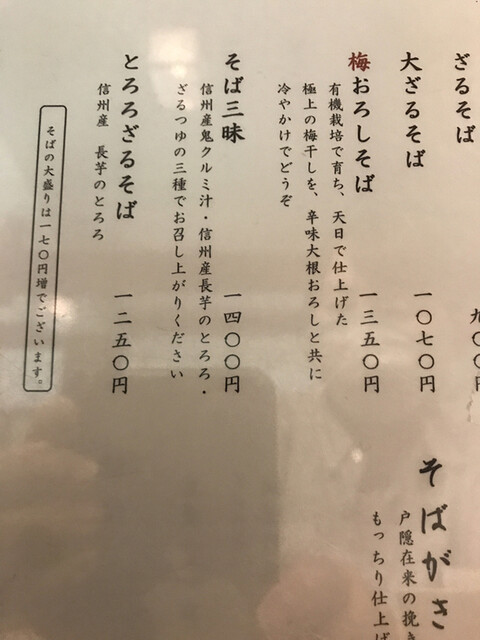 ざるそば
九〇〇円
大ざるそば
一〇七〇円
梅おろしそば
一三五〇円
有機栽培で育ち、天日で仕上げた
極上の梅干しを、辛味大根おろしと共に
冷やかけでどうぞ
そば三昧
一四〇〇円
信州産鬼クルミ汁・信州産長芋のとろろ・
ざるつゆの三種でお召し上がりください
とろろざるそば
一二五〇円
信州産 長芋のとろろ
そばの大盛りは一七〇円増でございます。
そばがき
戸隠在来の挽き
もっちり仕上げ